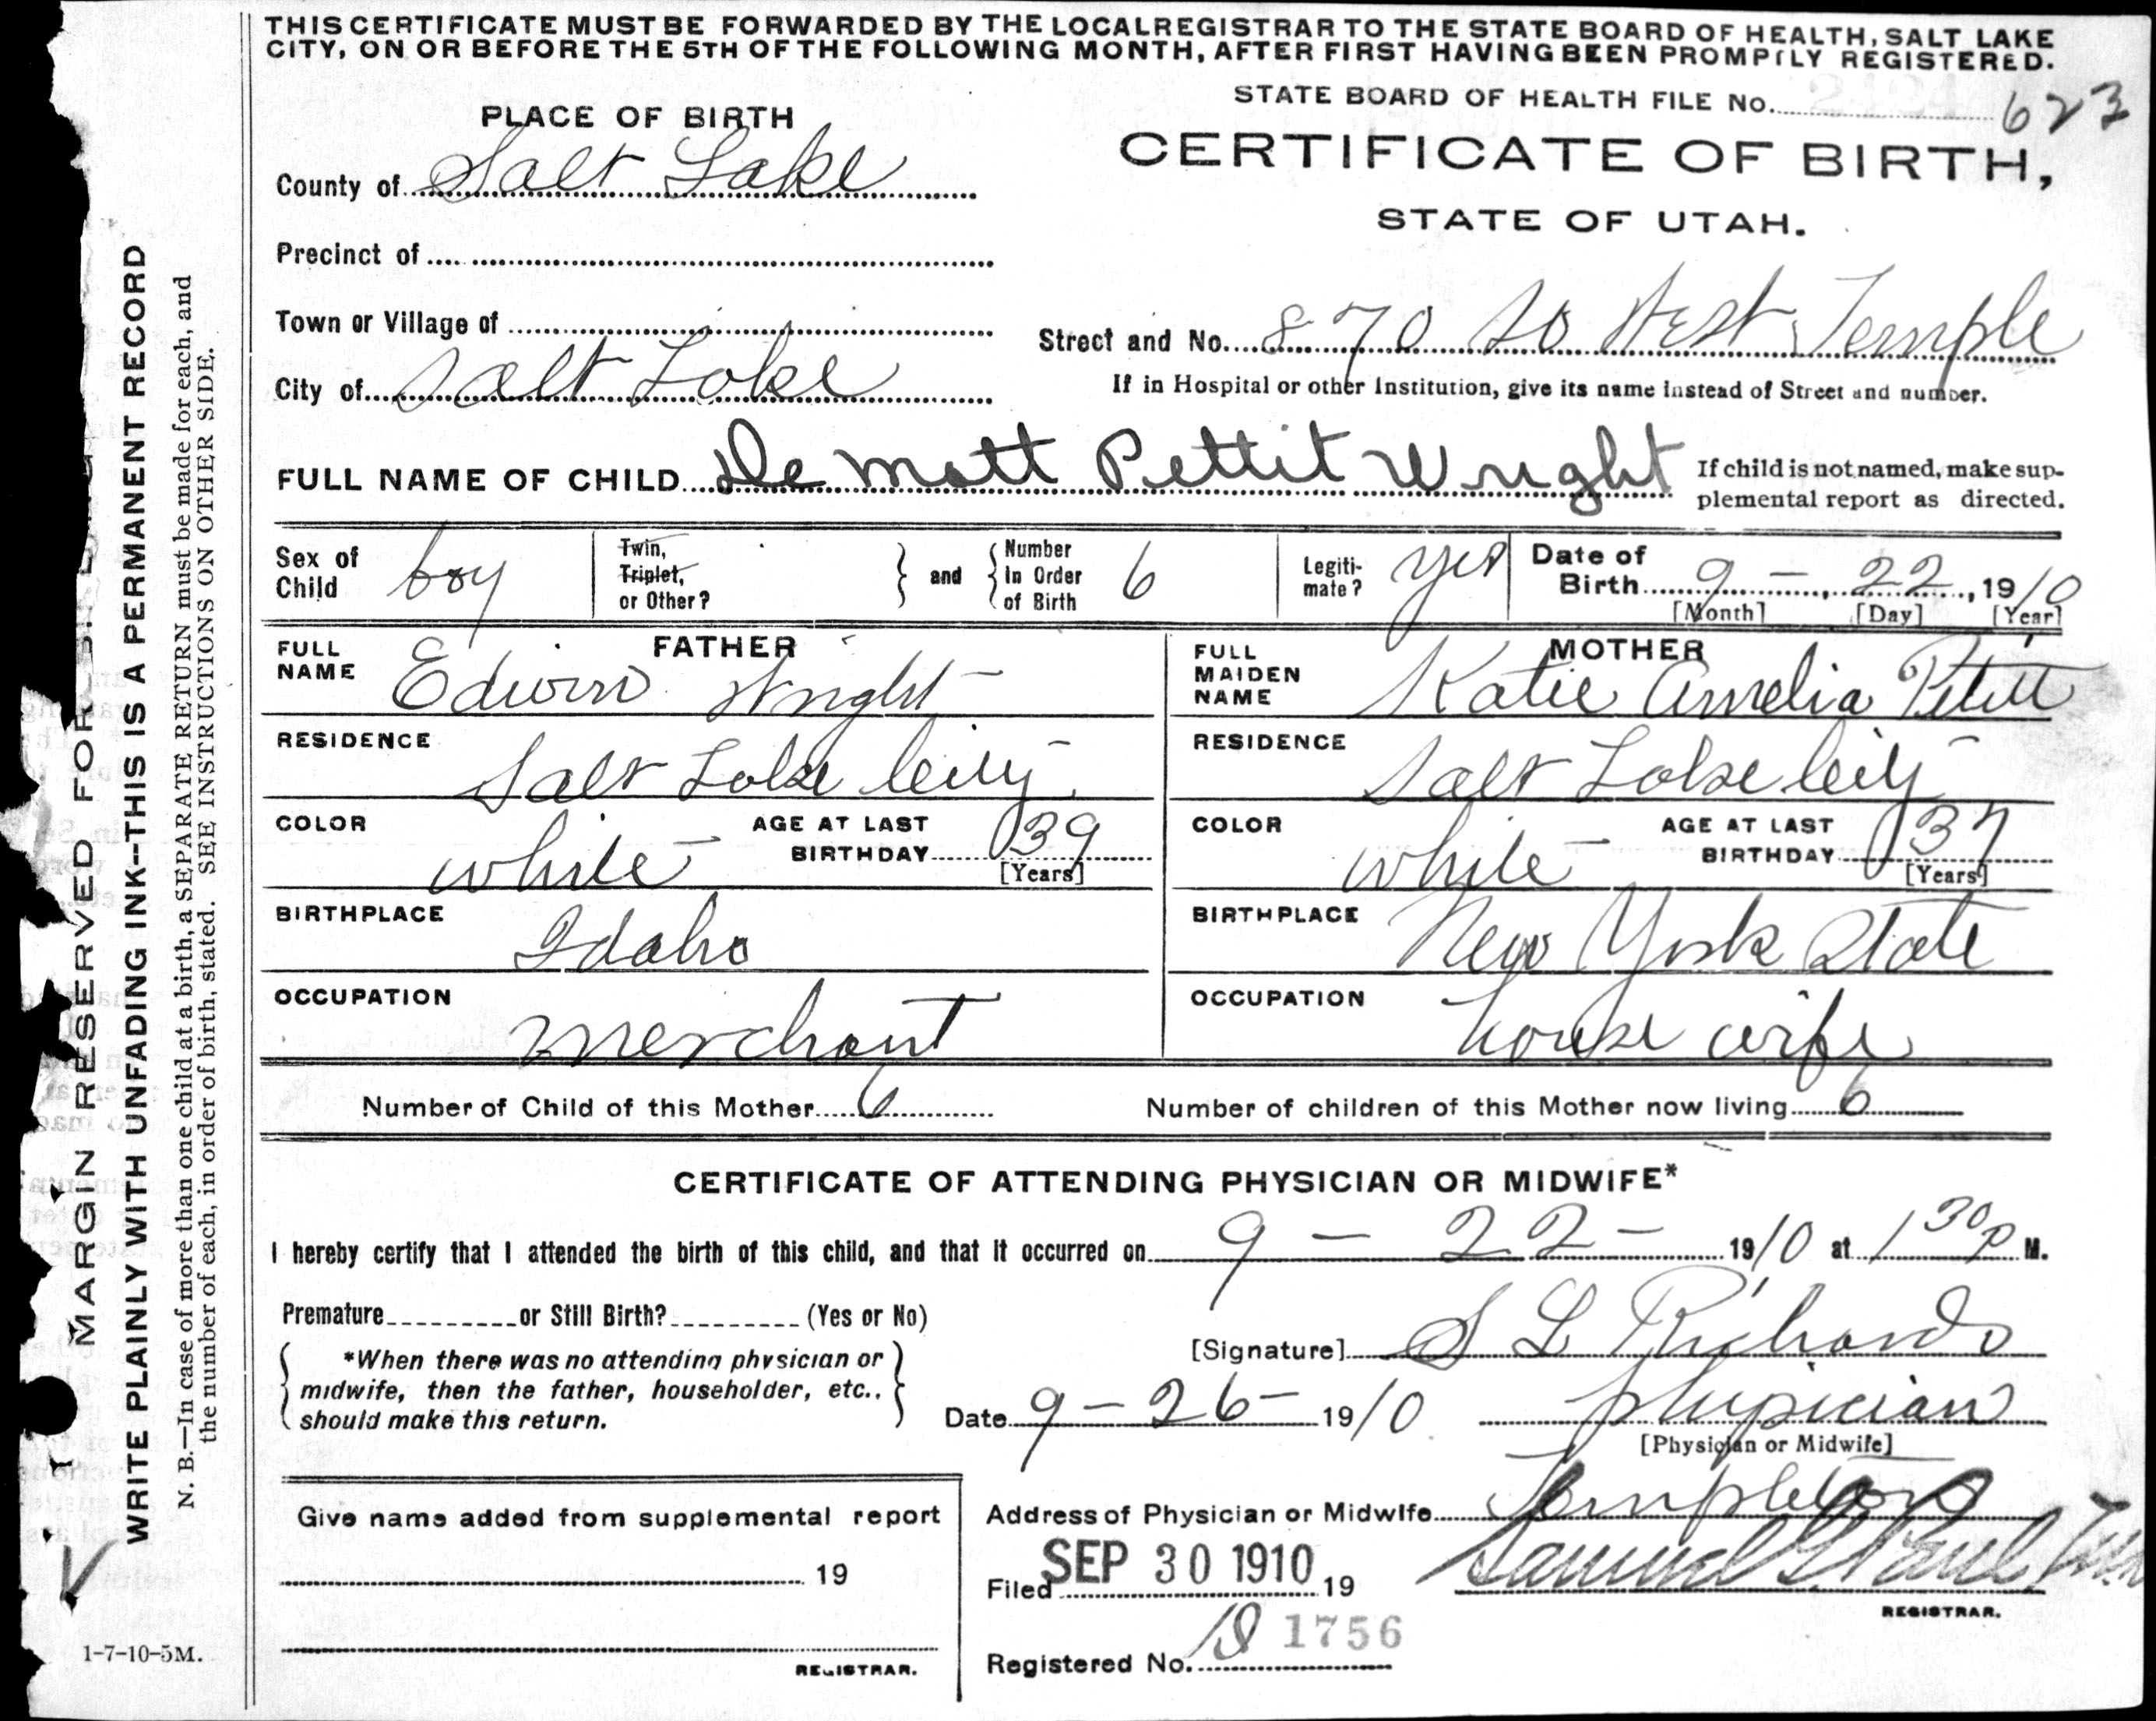 THIS CERTIFICATE MUST BE FORWARDED BY THE LOCAL REGISTRAR TO THE STATE BOARD OF HEALTH, SALT LAKE
CITY, ON OR BEFORE THE 5TH OF THE FOLLOWING MONTH, AFTER FIRST HAVING BEEN PROMPTLY REGISTERED.
STATE BOARD OF HEALTH FILE No. 623
PLACE OF BIRTH
CERTIFICATE OF BIRTH,
STATE OF UTAH.
County of Salt Lake
Precinct of
Town or Village of
Street and No. 870 So West Temple
City of Salt Lake
If in Hospital or other Institution, give its name instead of Street and number.
FULL NAME OF CHILD De Mott Pettit Wright
If child is not named, make sup-
plemental report as directed.
Sex of Child boy
Twin, Triplet, or Other?
and
Number In Order of Birth 6
Legiti-mate? yes
Date of Birth 9 - 22, 1910
[Month] [Day] [Year]
FATHER
FULL NAME Edwin Wright
RESIDENCE Salt Lake City
COLOR white
AGE AT LAST BIRTHDAY 39
[Years]
BIRTHPLACE Idaho
OCCUPATION merchant
MOTHER
FULL MAIDEN NAME Katie Amelia Petitt
RESIDENCE Salt Lake City
COLOR white
AGE AT LAST BIRTHDAY 37
[Years]
BIRTHPLACE New York State
OCCUPATION house wife
Number of Child of this Mother 6
Number of children of this Mother now living 6
CERTIFICATE OF ATTENDING PHYSICIAN OR MIDWIFE*
I hereby certify that I attended the birth of this child, and that it occurred on 9 - 22 - 1910 at 1 30 P M.
Premature or Still Birth? (Yes or No)
*When there was no attending physician or
midwife, then the father, householder, etc.,
should make this return.
[Signature] S L Richards
Date 9 - 26 - 1910
physician
[Physician or Midwife]
Give name added from supplemental report
19
REGISTRAR.
Address of Physician or Midwife Templeton
Filed SEP 30 1910 19
Samuel G. Paul
REGISTRAR.
Registered No. 1756
MARGIN RESERVED FOR
WRITE PLAINLY WITH UNFADING INK--THIS IS A PERMANENT RECORD
N. B.—In case of more than one child at a birth, a SEPARATE RETURN must be made for each, and
the number of each, in order of birth, stated. SEE INSTRUCTIONS ON OTHER SIDE.
1-7-10-5M.